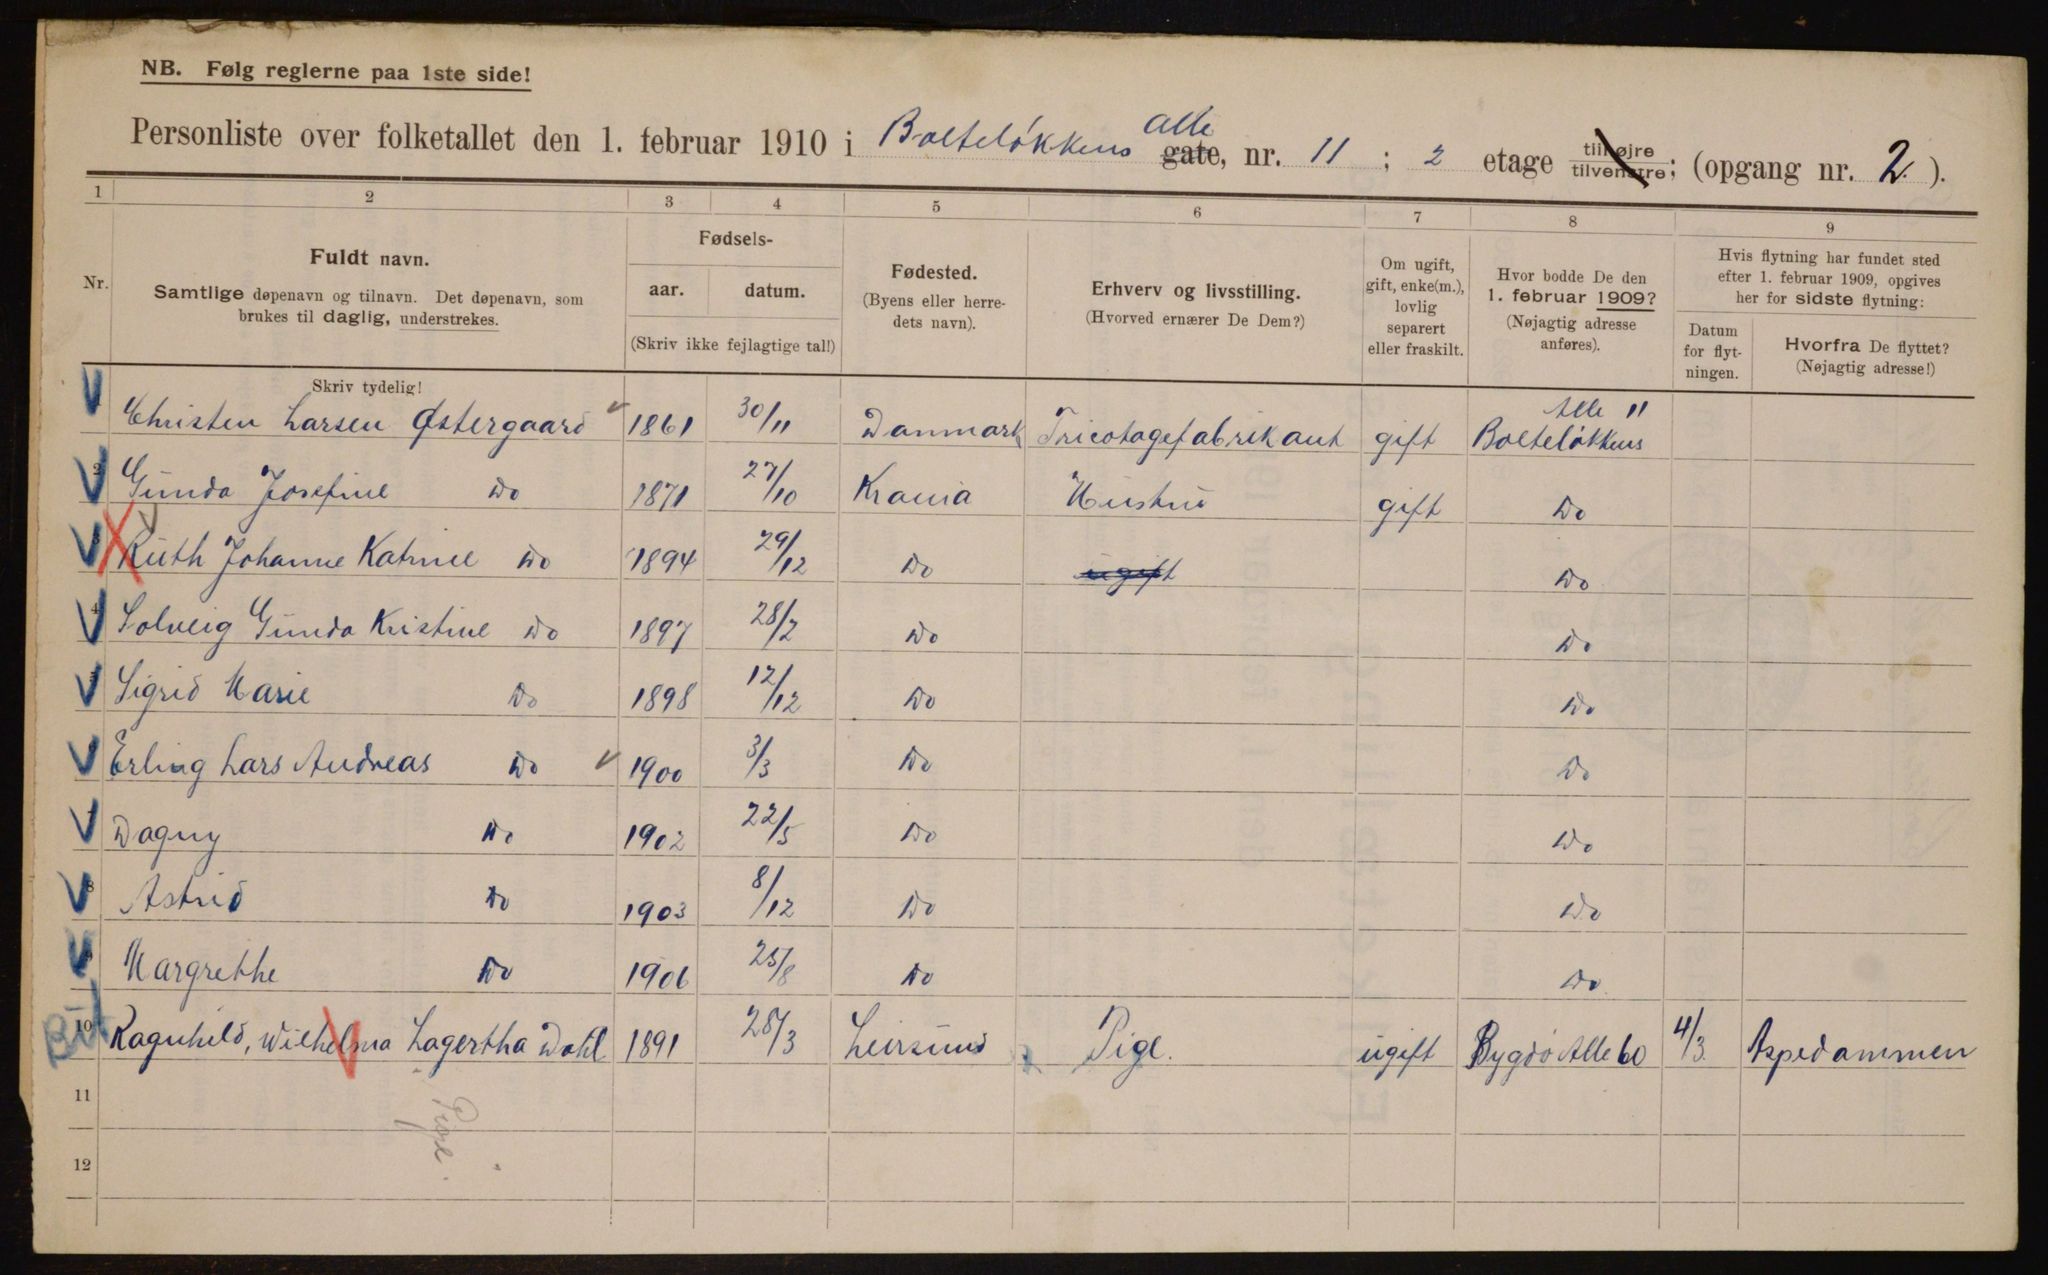 NB. Følg reglerne paa 1ste side!
Personliste over folketallet den 1. februar 1910 i Bolteløkkens Alle gate, nr. 11 ; 2 etage tilhøjre tilvenstre; (opgang nr. 2. ).
1 2 3 4 5 6 7 8 9
Nr.
Fuldt navn.
Samtlige døpenavn og tilnavn. Det døpenavn, som
brukes til daglig, understrekes.
Fødsels-
aar. datum.
(Skriv ikke fejlagtige tal!)
Fødested.
(Byens eller herre-
dets navn).
Erhverv og livsstilling.
(Hvorved ernærer De Dem?)
Om ugift,
gift, enke(m.),
lovlig
separert
eller fraskilt.
Hvor bodde De den
1. februar 1909?
(Nøjagtig adresse
anføres).
Hvis flytning har fundet sted
efter 1. februar 1909, opgives
her for sidste flytning:
Datum
for flyt-
ningen.
Hvorfra De flyttet?
(Nøjagtig adresse!)
Skriv tydelig!
Christen Larsen Østergaard 1861 30/11 Danmark Tricotagefabrikant gift Bolteløkkens Alle 11
2 Gunda Josefine Do 1871 27/10 Krania Hustru gift Do
Ruth Johanne Katrine Do 1894 29/12 Do ugift Do
4 Solveig Gunda Kristine Do 1897 28/2 Do Do
Sigrid Marie Do 1898 12/12 Do Do
Erling Lars Andreas Do 1900 3/3 Do Do
7 Dagny Do 1902 22/5 Do Do
8 Astrid Do 1903 8/12 Do Do
Margrethe Do 1906 25/8 Do Do
10 Ragnhild, Wilhelma Lagertha Dahl 1891 28/3 Leirsund Pige. ugift Bygdø Alle 60 4/3. Aspedammen
11
Pige.
12